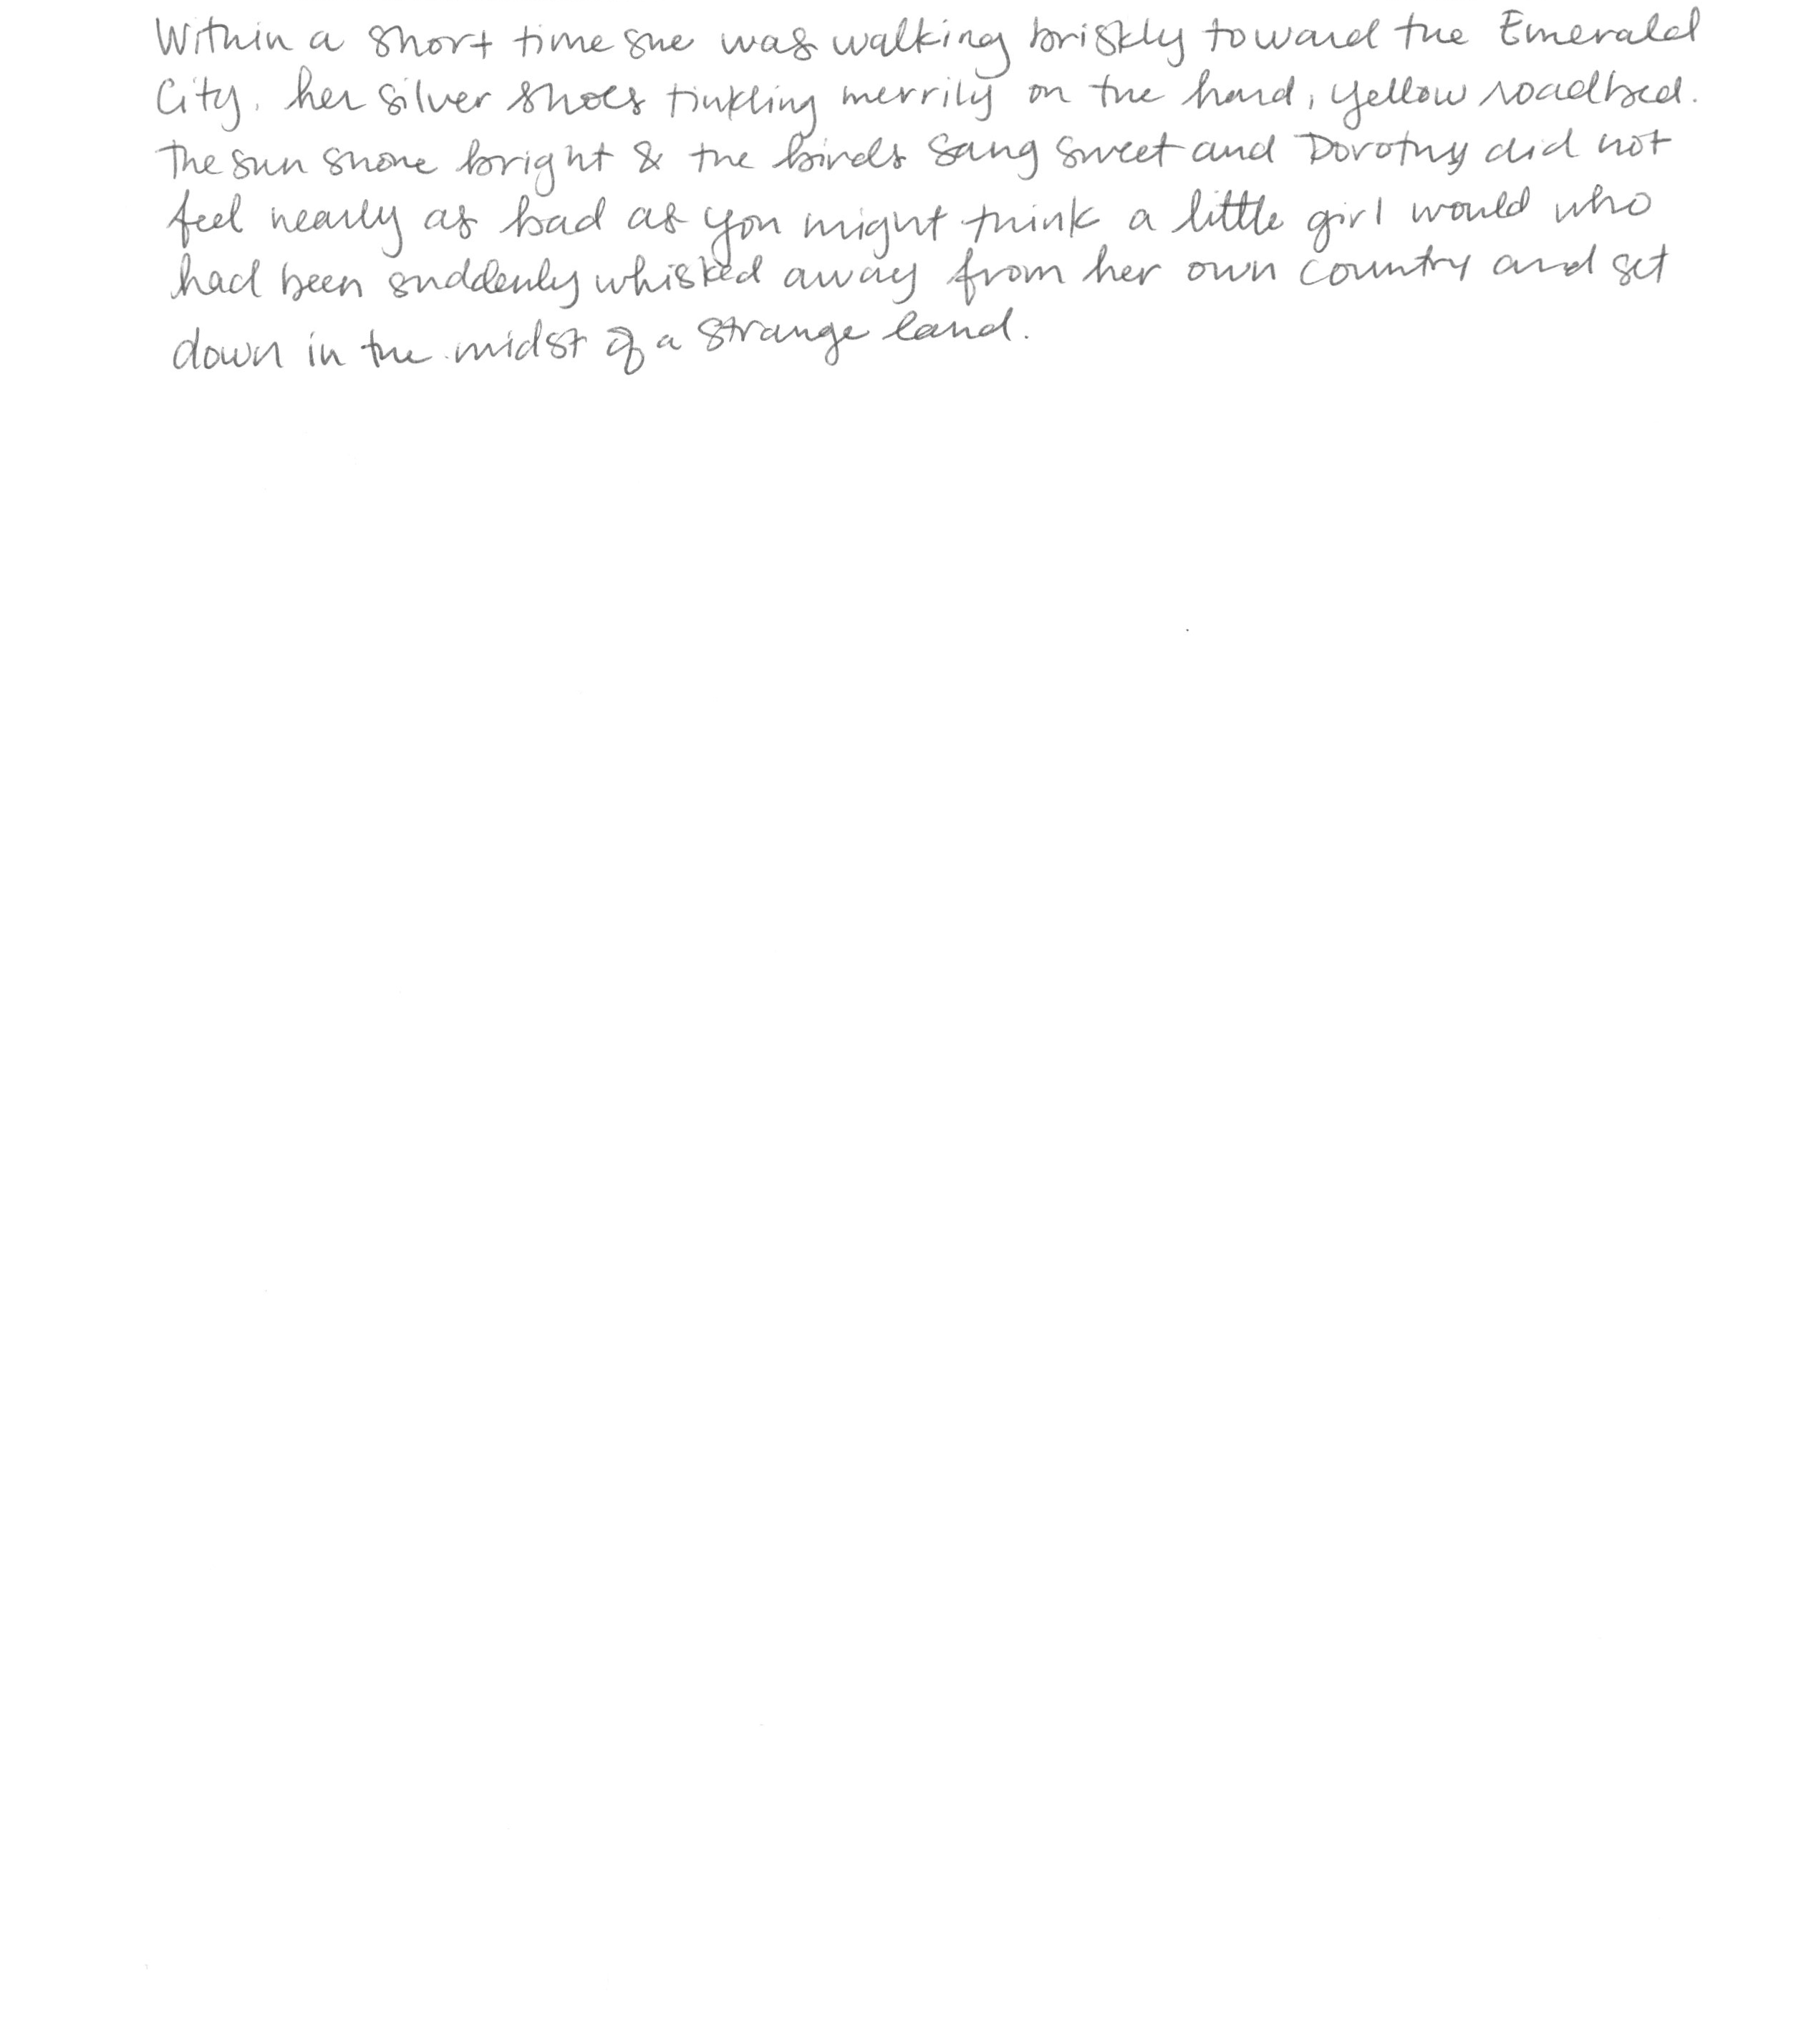 Within a short time she was walking briskly toward the Emerald
City, her silver shoes tinkling merrily on the hard, yellow roadbed.
The sun shone bright & the birds sang sweet and Dorothy did not
feel nearly as bad as you might think a little girl would who
had been suddenly whisked away from her own country and set
down in the midst of a strange land.